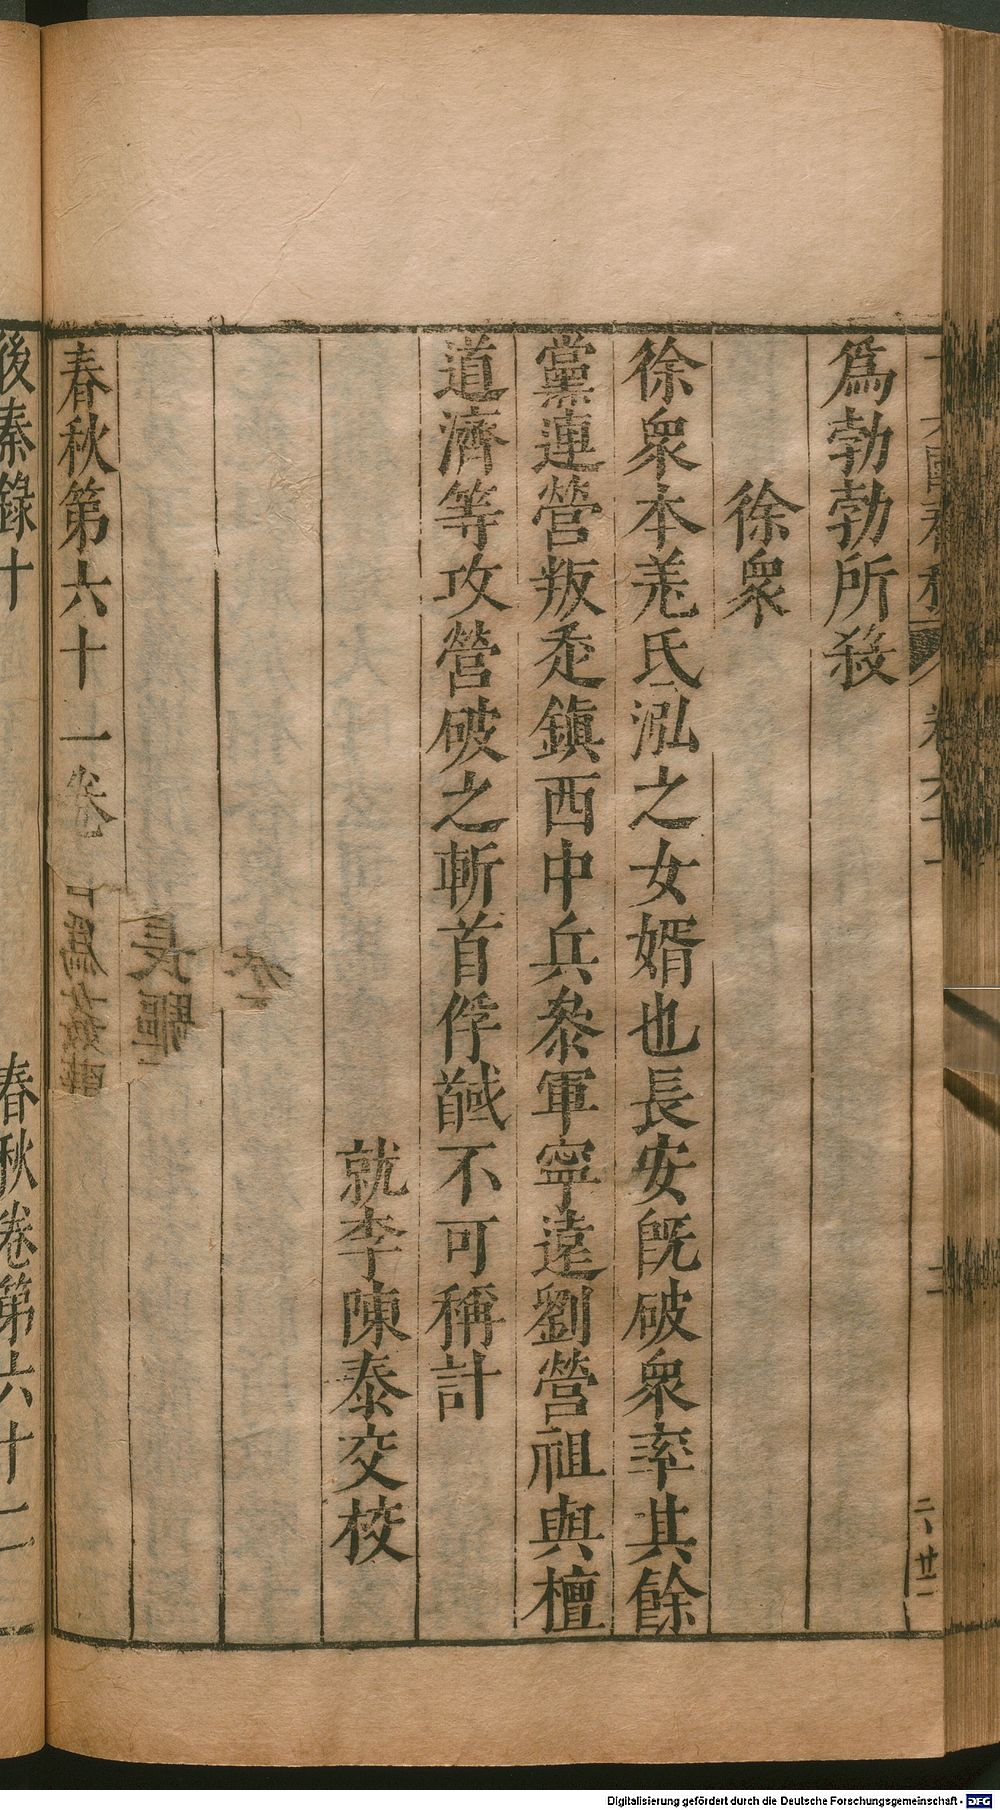 為勃勃所殺
徐衆
徐衆本羗氐泓之女婿也長安既破衆率其餘
黨連營叛走鎮西中兵叅軍寧遠劉營祖與檀
道濟等攻營破之斬首俘馘不可稱計
就李陳泰交校
長驅
春秋第六十一卷
後秦錄十
春秋卷第六十二
Digitalisierung gefördert durch die Deutsche Forschungsgemeinschaft - DFG